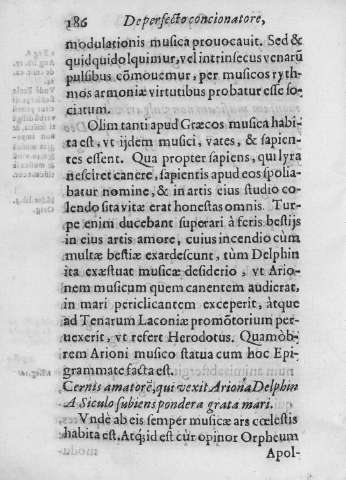 186 De perfecto concionatore,
modulationis musica prouocauit. Sed &
quidquid loquimur, vel intrinsecus venarũ
pulsibus cõmouemur, per musicos ryth-
mos armoniæ virtutibus probatur esse so-
ciatum.
Olim tanti apud Græcos musica habi-
ta est, vt ijdem musici, vates, & sapien-
tes essent. Qua propter sapiens, qui lyra
nesciret canere, sapientis apud eos spolia-
batur nomine, & in artis eius studio co-
lendo sita vitæ erat honestas omnis. Tur-
pe enim ducebant superari à feris bestijs
in eius artis amore, cuius incendio cùm
multæ bestiæ exardescunt, tùm Delphin
ita exæstuat musicæ desiderio, vt Ario-
nem musicum quem canentem audierat,
in mari periclicantem exceperit, àtque
ad Tenarum Laconiæ promõtorium per-
uexerit, vt refert Herodotus. Quamòb-
rem Arioni musico statua cum hoc Epi-
grammate facta est.
Cernis amatorẽ, qui vexit Ariona Delphin
A Siculo subiens pondera grata mari.
Vndè ab eis semper musicæ ars cœlestis
habita est. Atq́; id est cùr opinor Orpheum
Apol-